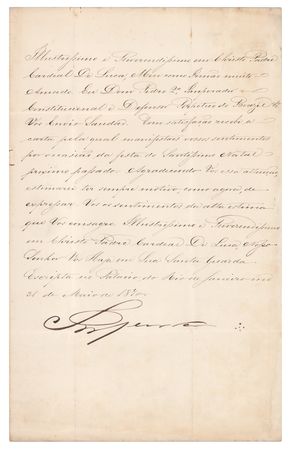 Illustrissimo e Reverendissimo em Christo Padre
Cardeal De Luca, Meu como Irmão muito
Amado. Eu Dom Pedro 2º Imperador
Constitucional e Defensor Perpetuo do Brazil
Vos Envio Saudar. Com satisfação recebi a
carta pela qual manifestais vossos sentimentos
por occasião da festa do Santissimo Natal
proximo passado. Agradecendo Vos essa attenção,
estimarei ter sempre motivo, como agora, de
expressar Vos os sentimentos da alta estima
que Vos consagro. Illustrissimo e Reverendissimo
em Christo Padre Cardeal De Luca, Nosso
Senhor Vos Haja em Sua Santa Guarda.
Escripta no Palacio do Rio de Janeiro em
31 de Maio de